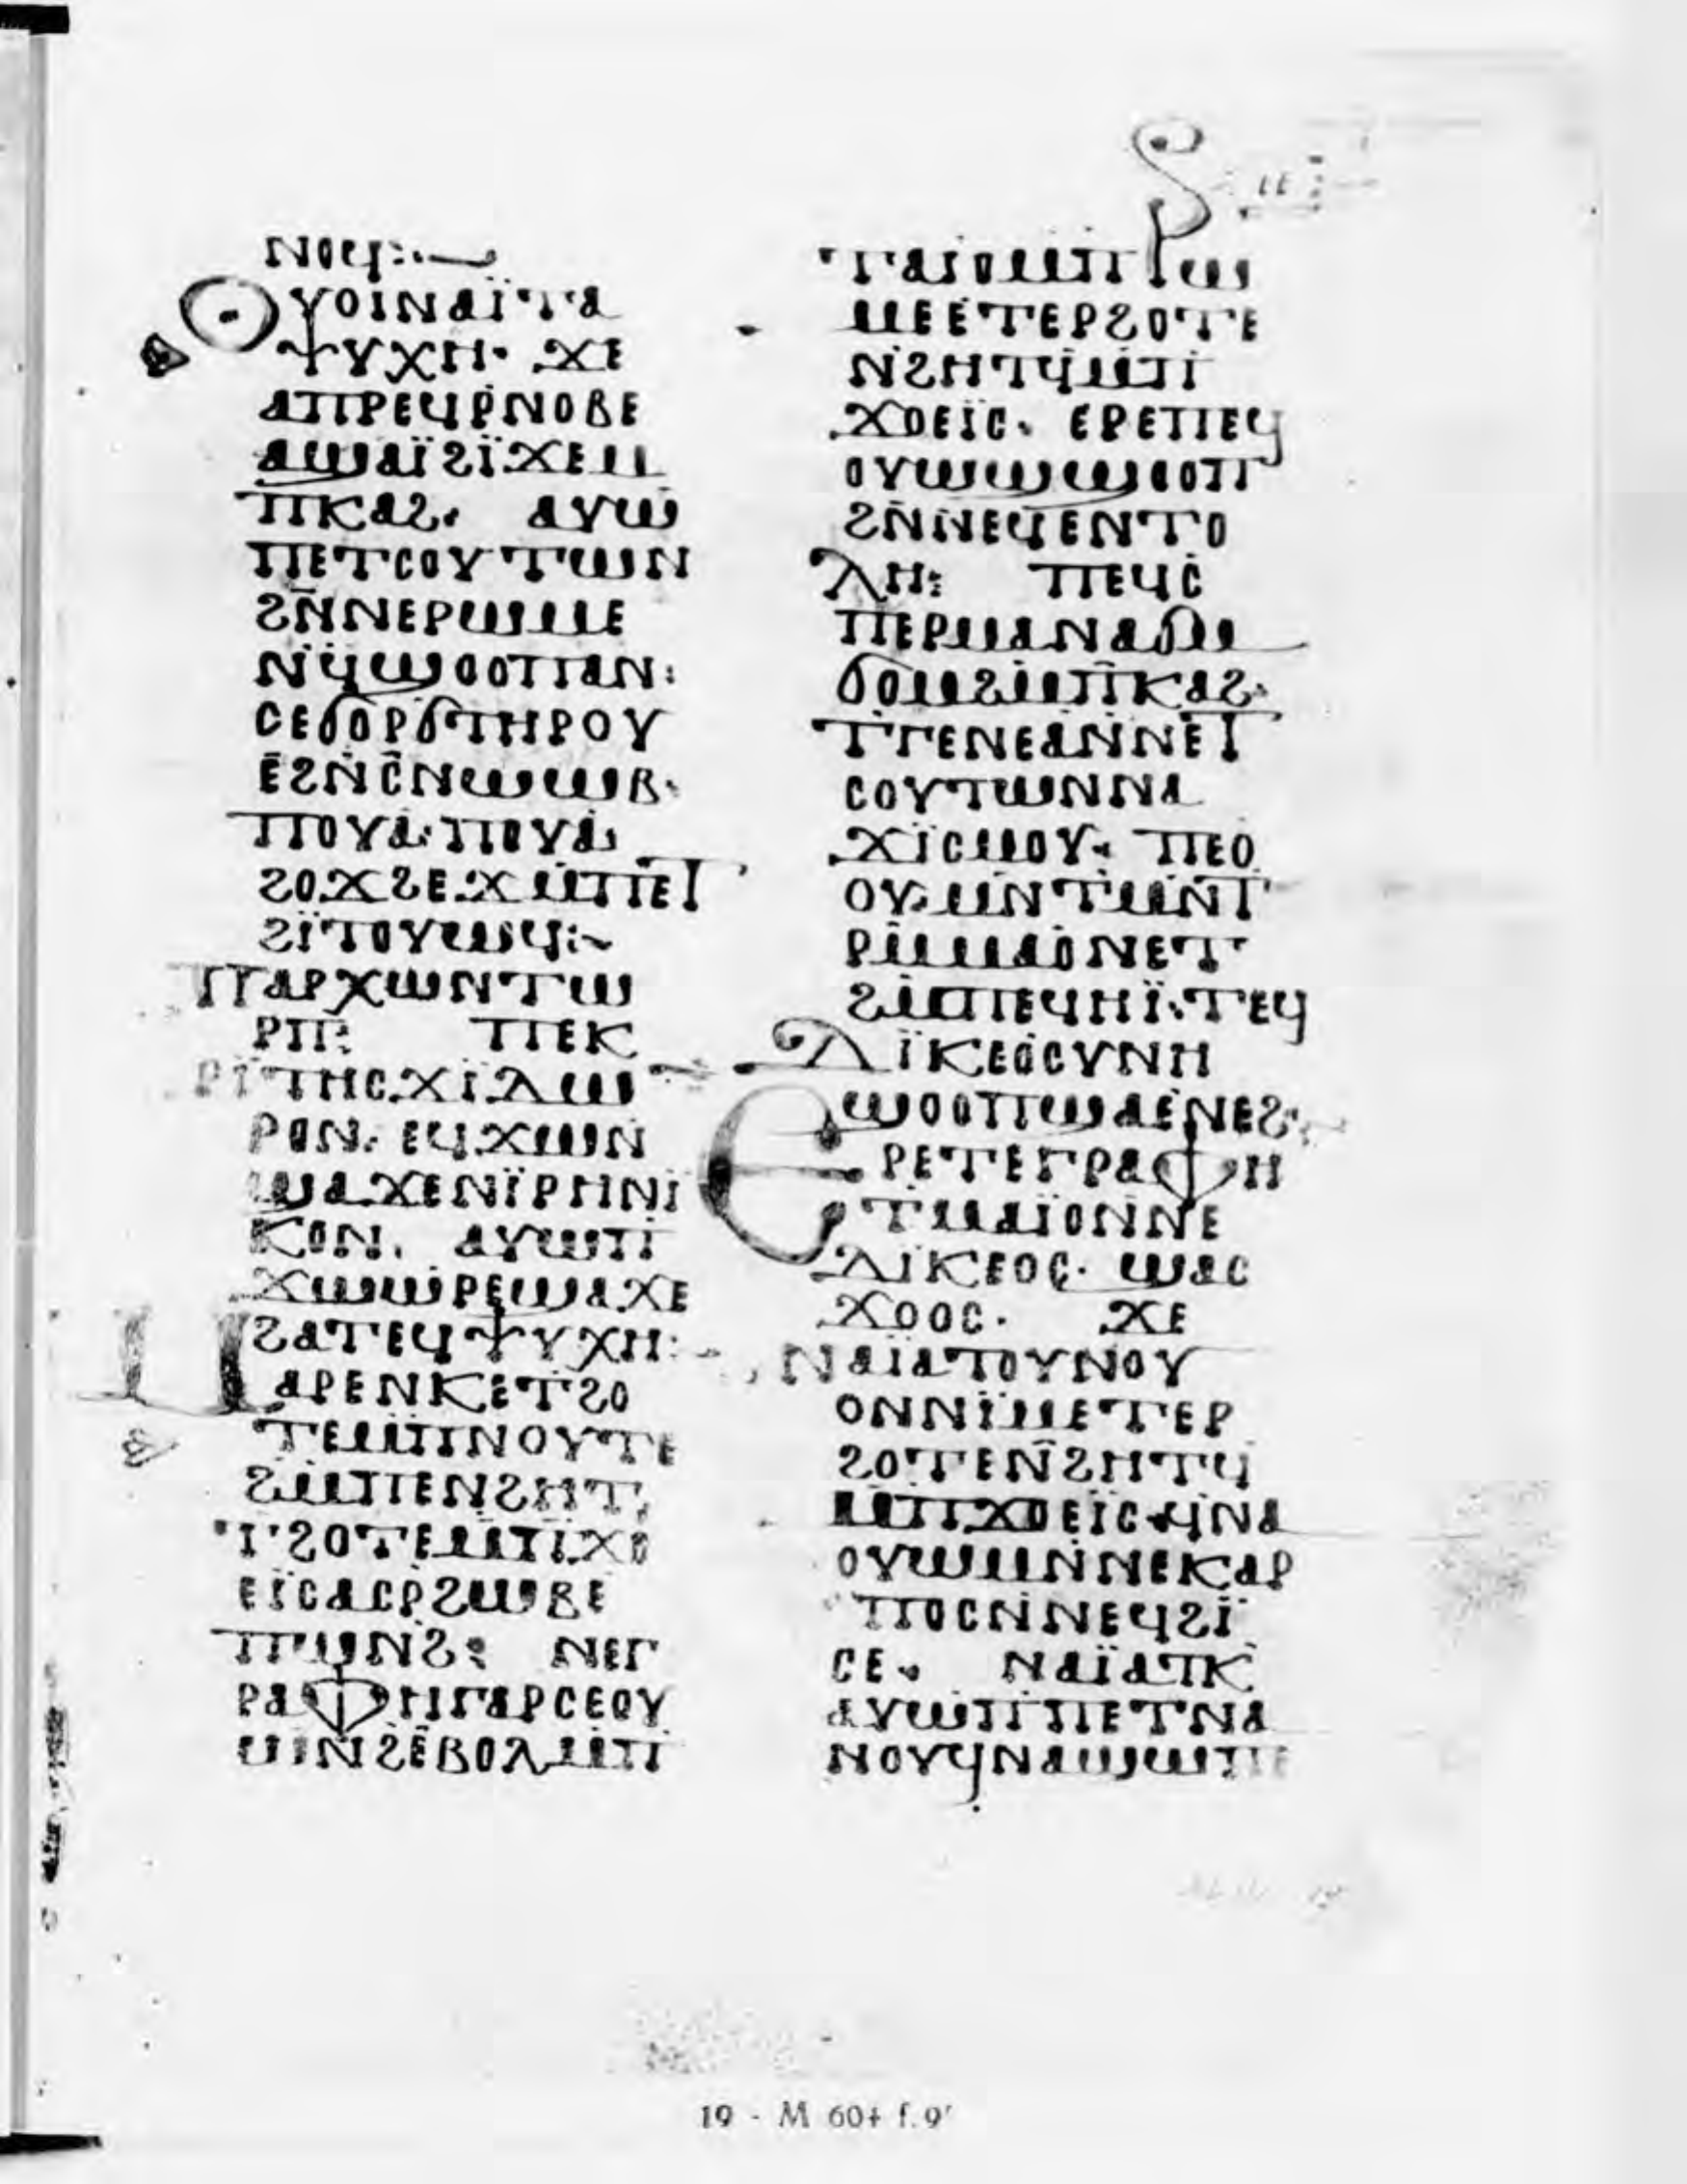 ⲛⲟϥ:·—
ⲟⲩⲟⲓⲛⲁⲓ̈ⲧⲁ
ⲯⲩⲭⲏ· ϫⲉ
ⲁⲡⲣⲉϥⲣ̇ⲛⲟⲃⲉ
ⲁϣⲁⲓ̈ϩⲓ̈ϫⲉⲙ
ⲡⲕⲁϩ· ⲁⲩⲱ
ⲡⲉⲧⲥⲟⲩⲧⲱⲛ
ϩⲛ̄ⲛⲉⲣⲱⲙⲉ
ⲛ̇ϥ̇ϣⲟⲟⲡⲁⲛ:
ⲥⲉϭⲟⲣϭⲧⲏⲣⲟⲩ
ⲉ̄ϩⲛ̇ⲥ̄ⲛⲱⲱⲃ·
ⲡⲟⲩⲁ̇·ⲡⲟⲩⲁ̇
ϩⲟϫϩⲉϫⲙ̇ⲡⲉⲧ
ϩⲓ̈ⲧⲟⲩⲱϥ:~
ⲡⲁⲣⲭⲱⲛⲧⲱ
ⲣⲡ̄: ⲡⲉⲕ
ⲣⲓ̈ⲧⲏⲥϫⲓ̇ⲇⲱ
ⲣⲟⲛ· ⲉϥϫⲱⲛ
ϣⲁϫⲉⲛⲓ̈ⲣⲏⲛⲓ̇
ⲕⲟⲛ· ⲁⲩⲱⲡ̇
ϫⲱⲱⲣⲉϣⲁϫⲉ
ϩⲁⲧⲉϥⲯⲩⲭⲏ:
ⲙⲁⲣⲉⲛⲕⲉⲧϩⲟ
ⲧⲉⲙ̇ⲡⲛⲟⲩⲧⲉ
ϩⲙⲡⲉⲛϩⲏⲧ,
ⲧϩⲟⲧⲉⲙ̇ⲡ̇ϫⲟ
ⲉⲓ̈ⲥⲁⲥⲣ̇ϩⲱⲃⲉ
ⲡⲱⲛϩ: ⲛⲉⲅ
ⲣⲁⲫⲏⲅⲁⲣⲥⲉⲟⲩ
ⲱⲛϩⲉ̄ⲃⲟⲗⲙ̇ⲡ
ⲧⲁⲓⲟⲙ̇ⲡⲣⲱ
ⲙⲉⲉ̇ⲧⲉⲣϩⲟⲧⲉ
ⲛ̇ϩⲏⲧϥ̇ⲙ̇ⲡ̇
ϫⲟⲉⲓ̈ⲥ· ⲉ̇ⲣⲉⲡⲉϥ
ⲟⲩⲱϣϣⲟⲟⲡ
ϩⲛ̇ⲛⲉϥⲉⲛⲧⲟ
ⲗⲏ: ⲡⲉϥⲥ̇
ⲡⲉⲣⲙⲁⲛⲁϭⲙ
ϭⲟⲙϩⲓ̇ⲙ̇ⲡ̄ⲕⲁϩ·
ⲧⲅⲉⲛⲉⲁⲛ̇ⲛⲉⲧ
ⲥⲟⲩⲧⲱⲛⲛⲁ
ϫⲓ̇ⲥⲙⲟⲩ· ⲡⲉⲟ
ⲟⲩ·ⲙⲛ̇ⲧⲙⲛ̄ⲧ
ⲣⲙ̇ⲙⲁⲟ̇ⲛⲉⲧ
ϩⲙ̇ⲡⲉϥⲏⲓ̈·ⲧⲉϥ
ⲇⲓ̈ⲕⲉⲟ̇ⲥⲩⲛⲏ
ϣⲟⲟⲡϣⲁⲉ̇ⲛⲉϩ·
ⲉⲣⲉⲧⲉⲅⲣⲁⲫⲏ
ⲧⲙⲁⲓ̈ⲟⲛ̇ⲛⲉ
ⲇⲓ̈ⲕⲉⲟⲥ· ϣⲁⲥ
ϫⲟⲟⲥ· ϫⲉ
ⲛⲁⲓ̈ⲁⲧⲟⲩⲛⲟⲩ
ⲟⲛⲛⲓ̈ⲙⲉⲧⲉⲣ
ϩⲟⲧⲉⲛ̄ϩⲏⲧϥ
ⲙ̇ⲡϫⲟⲉⲓ̈ⲥ·ϥⲛⲁ
ⲟⲩⲱⲙⲛ̇ⲛⲉⲕⲁⲣ
ⲡⲟⲥⲛ̇ⲛⲉϥϩⲓ̈
ⲥⲉ· ⲛⲁⲓ̈ⲁⲧⲕ
ⲁⲩⲱⲡ̇ⲡⲉⲧⲛⲁ
ⲛⲟⲩϥⲛⲁϣⲱⲡⲉ
19 - M 604 f. 9ʳ